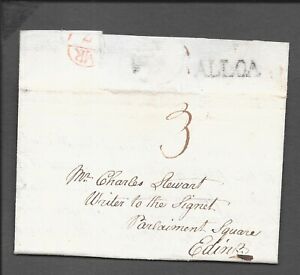 ALLOA
3
Mr. Charles Stewart
Writer to the Signet
Parlaiment Square
Edinr.